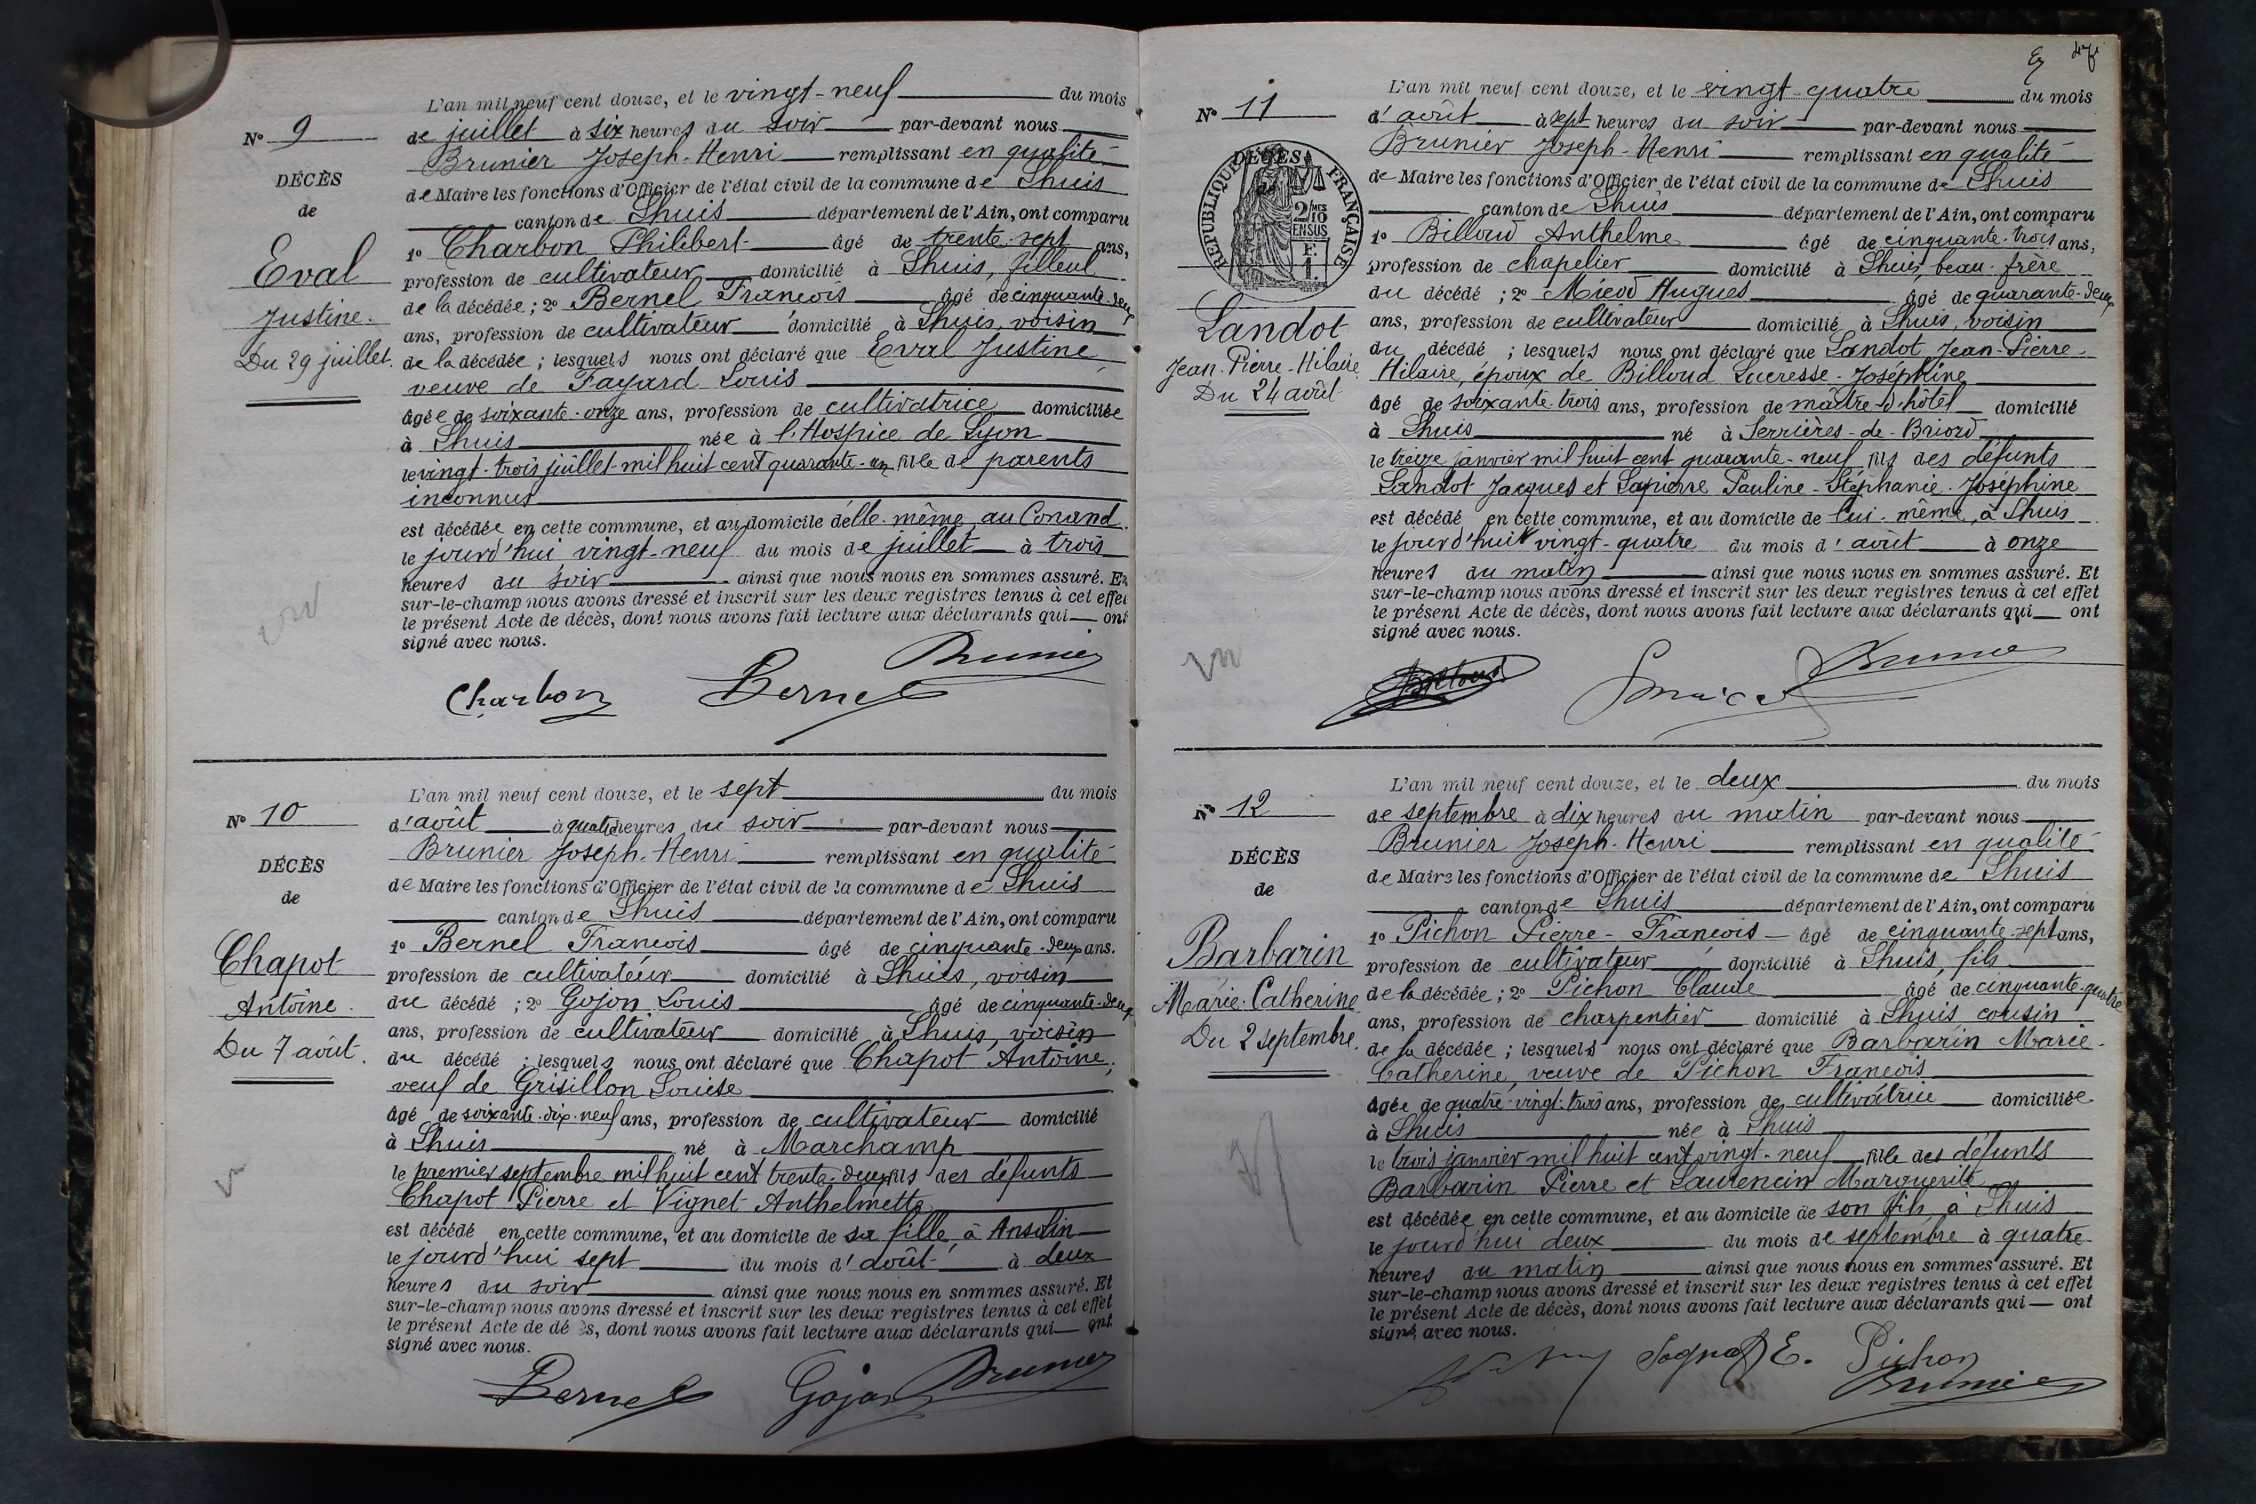 L'an mil neuf cent douze, et le vingt-neuf du mois
de juillet à six heures du soir par-devant nous
Brunier Joseph-Henri remplissant en qualité
de Maire les fonctions d'Officier de l'état civil de la commune de Lhuis
canton de Lhuis département de l'Ain, ont comparu
1º Charbon Philibert âgé de trente-sept ans,
profession de cultivateur domicilié à Lhuis, filleul
de la décédée ; 2º Bernel François âgé de cinquante-deux
ans, profession de cultivateur domicilié à Lhuis, voisin
de la décédée ; lesquels nous ont déclaré que Eval Justine,
veuve de Fayard Louis
âgée de soixante-onze ans, profession de cultivatrice domiciliée
à Lhuis née à l'Hospice de Lyon
le vingt-trois juillet mil huit cent quarante-un fille de parents
inconnus
est décédée en cette commune, et au domicile d'elle-même, au Conand
le jourd'hui vingt-neuf du mois de juillet à trois
heures du soir ainsi que nous nous en sommes assuré. Et
sur-le-champ nous avons dressé et inscrit sur les deux registres tenus à cet effet
le présent Acte de décès, dont nous avons fait lecture aux déclarants qui ont
signé avec nous.
Charbon Bernel Brunier
Nº 9
DÉCÈS
de
Eval
Justine.
Du 29 juillet.
Nº 10
DÉCÈS
de
Chapot
Antoine.
Du 7 août.
L'an mil neuf cent douze, et le sept du mois
d'août à quatre heures du soir par-devant nous
Brunier Joseph-Henri remplissant en qualité
de Maire les fonctions d'Officier de l'état civil de la commune de Lhuis
canton de Lhuis département de l'Ain, ont comparu
1º Bernel François âgé de cinquante-deux ans.
profession de cultivateur domicilié à Lhuis, voisin
du décédé ; 2º Gojon Louis âgé de cinquante-deux
ans, profession de cultivateur domicilié à Lhuis, voisin
du décédé ; lesquels nous ont déclaré que Chapot Antoine,
veuf de Grisillon Louise
âgé de soixante-dix-neuf ans, profession de cultivateur domicilié
à Lhuis né à Marchamp
le premier septembre mil huit cent trente-deux fils des défunts
Chapot Pierre et Vignet Anthelmette
est décédé en cette commune, et au domicile de sa fille, à Ansolin
le jourd'hui sept du mois d'août à deux
heures du soir ainsi que nous nous en sommes assuré. Et
sur-le-champ nous avons dressé et inscrit sur les deux registres tenus à cet effet
le présent Acte de décès, dont nous avons fait lecture aux déclarants qui ont
signé avec nous.
Bernel Gojon Brunier
Nº 11
DÉCÈS
de
RÉPUBLIQUE FRANÇAISE
2/10 MES
EN SUS
F.
1.
Landot
Jean-Pierre-Hilaire
Du 24 août
L'an mil neuf cent douze, et le vingt-quatre du mois
d'août à sept heures du soir par-devant nous
Brunier Joseph-Henri remplissant en qualité
de Maire les fonctions d'Officier de l'état civil de la commune de Lhuis
canton de Lhuis département de l'Ain, ont comparu
1º Billoud Anthelme âgé de cinquante-trois ans,
profession de chapelier domicilié à Lhuis, beau-frère
du décédé ; 2º Micod Hugues âgé de quarante-deux
ans, profession de cultivateur domicilié à Lhuis, voisin
du décédé ; lesquels nous ont déclaré que Landot Jean-Pierre-
Hilaire, époux de Billoud Lucresse-Joséphine
âgé de soixante-trois ans, profession de maître-d'hôtel domicilié
à Lhuis né à Serrières-de-Briord
le treize janvier mil huit cent quarante-neuf, fils des défunts
Landot Jacques et Lapierre Pauline-Stéphanie-Joséphine
est décédé en cette commune, et au domicile de lui-même, à Lhuis
le jourd'hui vingt-quatre du mois d'août à onze
heures du matin ainsi que nous nous en sommes assuré. Et
sur-le-champ nous avons dressé et inscrit sur les deux registres tenus à cet effet
le présent Acte de décès, dont nous avons fait lecture aux déclarants qui ont
signé avec nous.
Billoud Brunier
Nº 12
DÉCÈS
de
Barbarin
Marie-Catherine
Du 2 septembre.
L'an mil neuf cent douze, et le deux du mois
de septembre à dix heures du matin par-devant nous
Brunier Joseph-Henri remplissant en qualité
de Maire les fonctions d'Officier de l'état civil de la commune de Lhuis
canton de Lhuis département de l'Ain, ont comparu
1º Pichon Pierre-François âgé de cinquante-sept ans,
profession de cultivateur domicilié à Lhuis, fils
de la décédée ; 2º Pichon Claude âgé de cinquante-quatre
ans, profession de charpentier domicilié à Lhuis cousin
de la décédée ; lesquels nous ont déclaré que Barbarin Marie-
Catherine, veuve de Pichon François
âgée de quatre-vingt-trois ans, profession de cultivatrice domiciliée
à Lhuis née à Lhuis
le trois janvier mil huit cent vingt-neuf fille des défunts
Barbarin Pierre et Laurencin Marguerite
est décédée en cette commune, et au domicile de son fils, à Lhuis
le jourd'hui deux du mois de septembre à quatre
heures du matin ainsi que nous nous en sommes assuré. Et
sur-le-champ nous avons dressé et inscrit sur les deux registres tenus à cet effet
le présent Acte de décès, dont nous avons fait lecture aux déclarants qui ont
signé avec nous.
Pichon
Brunier